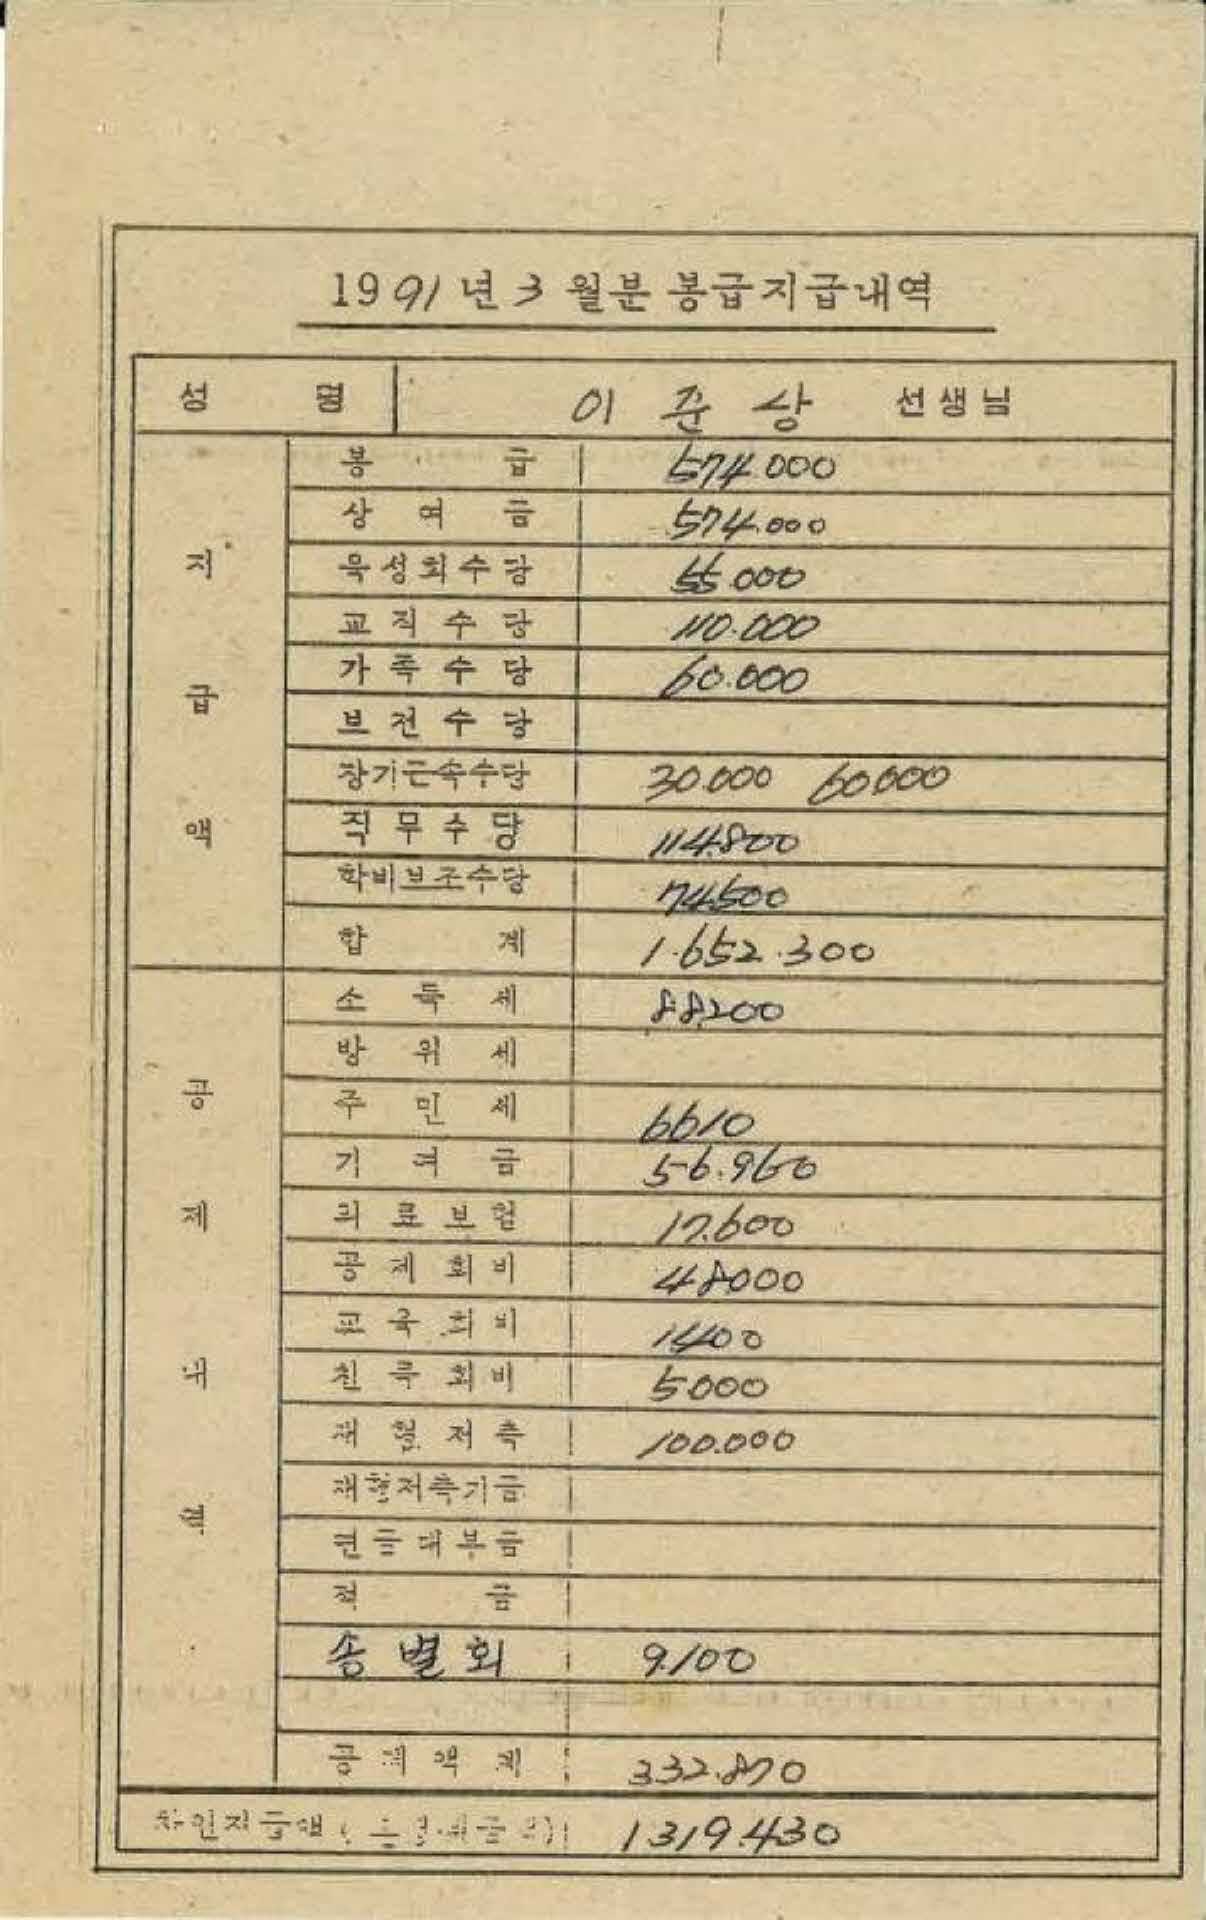 1991년 3월분 봉급지급내역
성 명 이 준 상 선생님
지 급 액
봉 급 574.000
상 여 금 574.000
육성회수당 55.000
교직수당 110.000
가족수당 60.000
보건수당
장기근속수당 30.000 60000
직무수당 114.800
학비보조수당 74.500
합 계 1.652.300
공 제 내
소 득 세 88.200
방 위 세
주 민 세 6610
기 여 금 56.960
의료보험 17.600
공제회비 48000
교육회비 1400
친목회비 5000
재형저축 100.000
재형저축기금
연금대부금
적 금
송별회 9.100
공제액계 332.870
차인지급액 1319.430